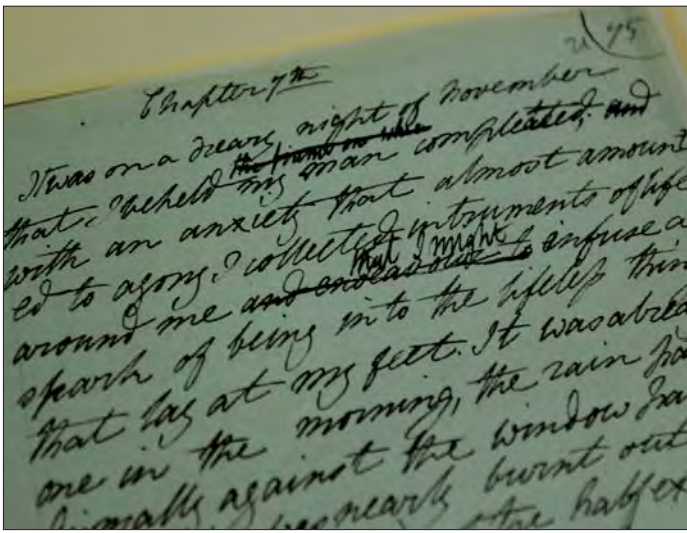 75
Chapter 7th
It was on a dreary night of November
that I beheld my man compleated; and
with an anxiety that almost amount
ed to agony I collected intruments of life
that I might
around me and endeavour to infuse a
spark of being into the lifeless thin
that lay at my feet. It was alrea
one in the morning, the rain pa
dismally against the window pa
nearly burnt out
the half ex